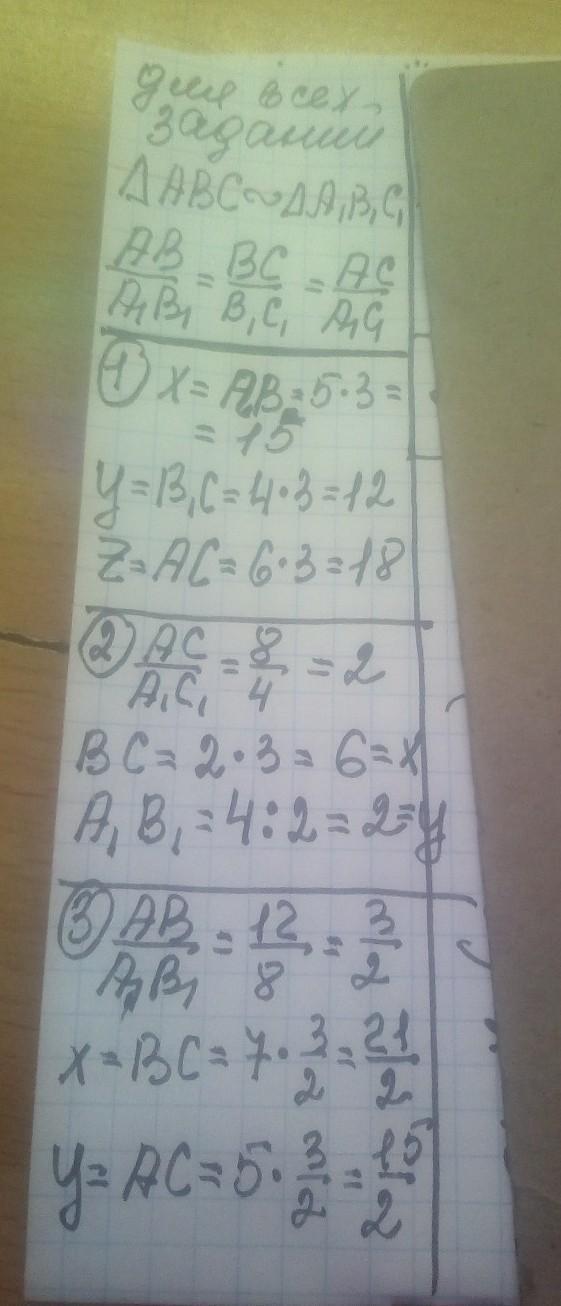 для всех
заданий
ΔABC∼ΔA₁B₁C₁
AB/A₁B₁ = BC/B₁C₁ = AC/A₁C₁
① x = AB = 5·3 =
= 15
y = B₁C = 4·3 = 12
z = AC = 6·3 = 18
② AC/A₁C₁ = 8/4 = 2
BC = 2·3 = 6 = x
A₁B₁ = 4:2 = 2 = y
③ AB/A₁B₁ = 12/8 = 3/2
x = BC = 7·3/2 = 21/2
y = AC = 5·3/2 = 15/2